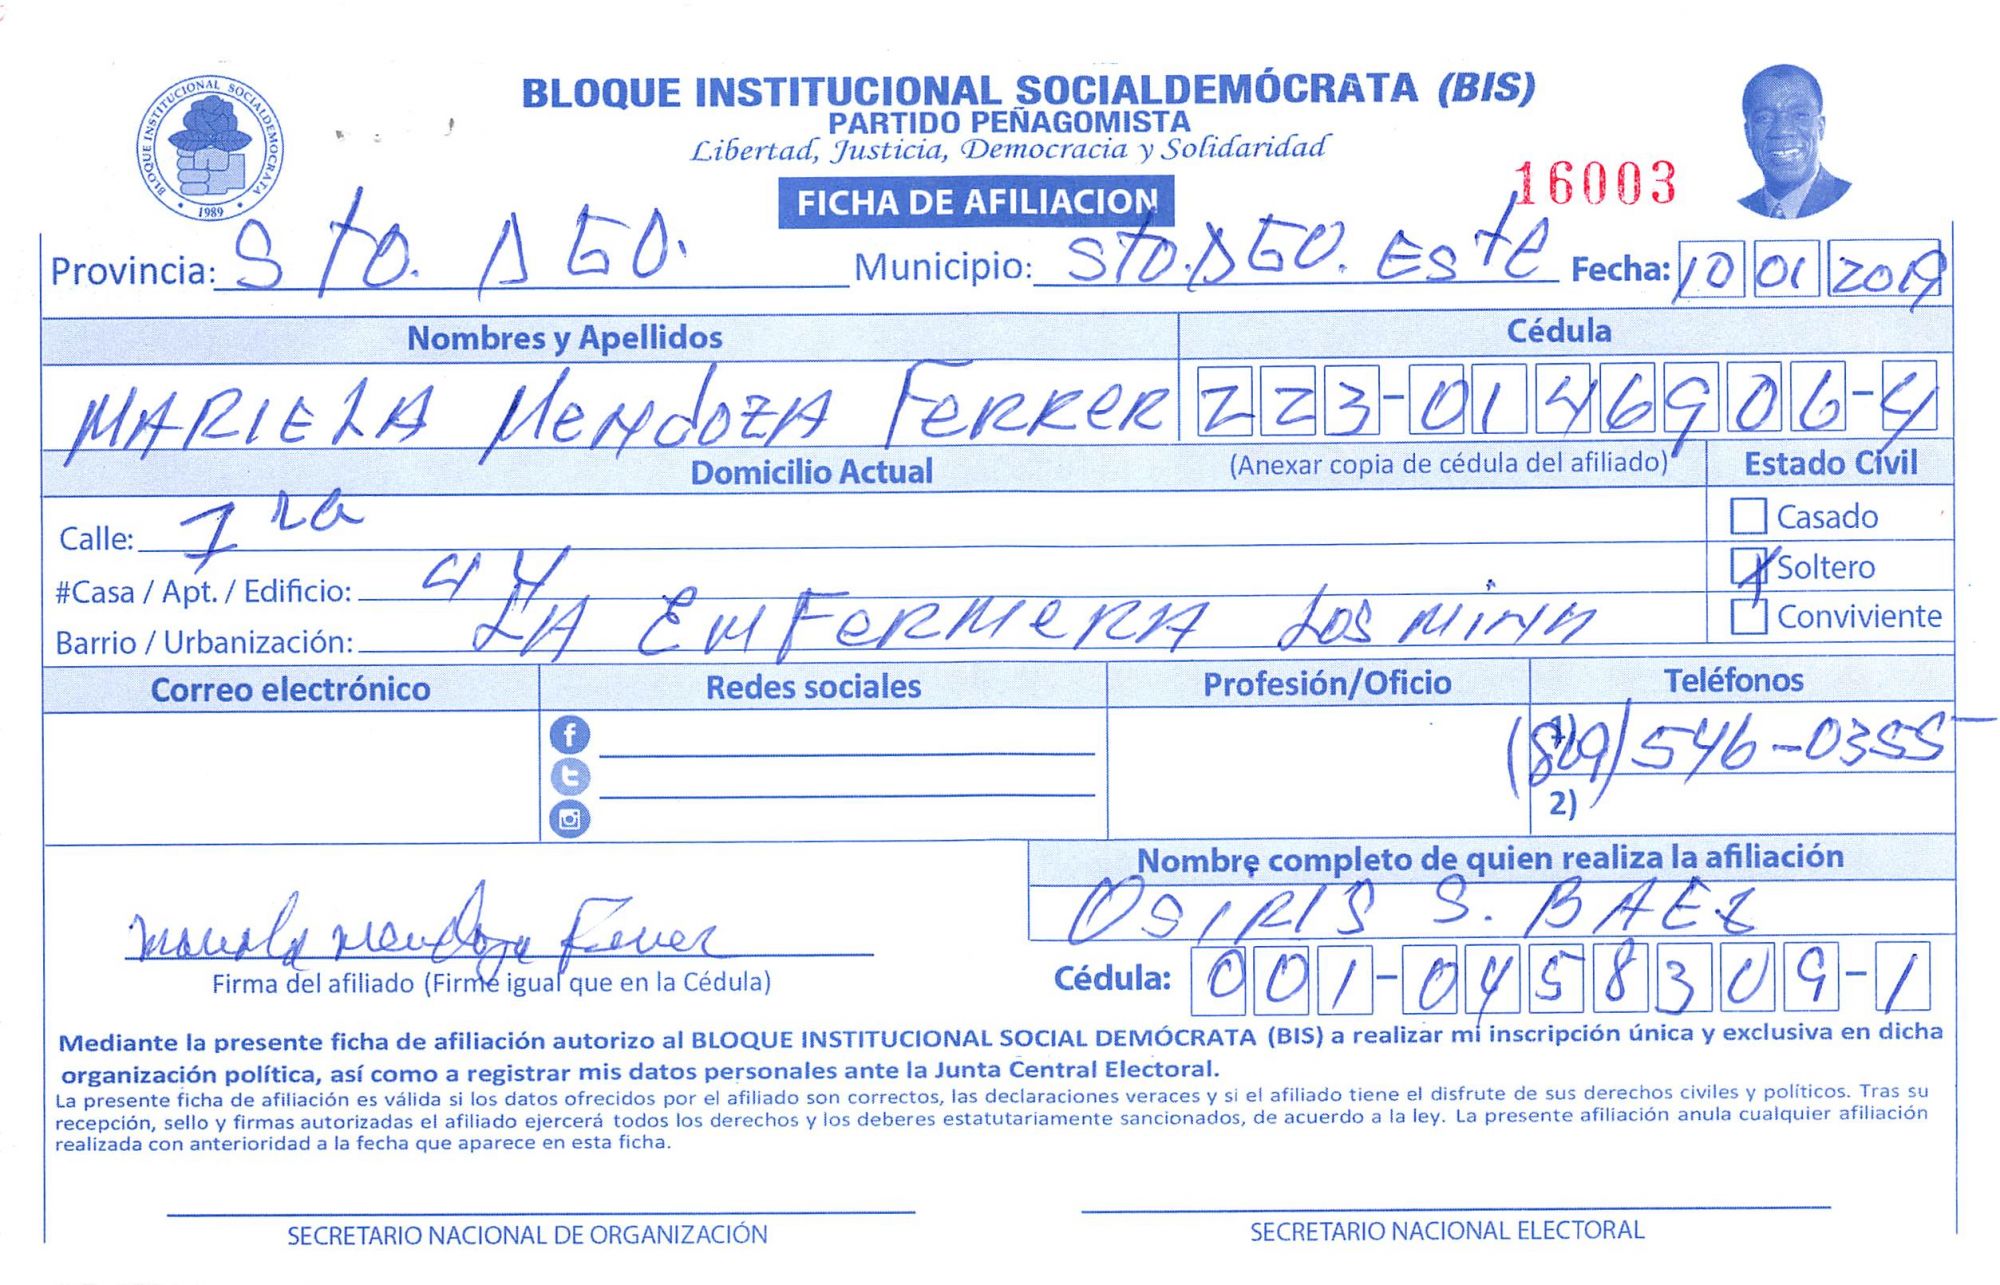 BLOQUE INSTITUCIONAL SOCIALDEMÓCRATA (BIS)
PARTIDO PEÑAGOMISTA
Libertad, Justicia, Democracia y Solidaridad
BLOQUE INSTITUCIONAL SOCIALDEMOCRATA
1989
16003
FICHA DE AFILIACION
Provincia: Sto. DGO. Municipio: Sto. DGO. Este Fecha: 10 01 2019
Nombres y Apellidos Cédula
MARIELA MENDOZA FERRER 223-0146906-4
Domicilio Actual (Anexar copia de cédula del afiliado) Estado Civil
Calle: 1ra
Casado
#Casa / Apt. / Edificio: 44
X Soltero
Barrio / Urbanización: LA ENFERMERA Los Mina
Conviviente
Correo electrónico Redes sociales Profesión/Oficio Teléfonos
1) (809) 546-0355
2)
Nombre completo de quien realiza la afiliación
OSIRIS S. BAEZ
Mariela Mendoza Ferrer
Firma del afiliado (Firme igual que en la Cédula)
Cédula: 001-0458309-1
Mediante la presente ficha de afiliación autorizo al BLOQUE INSTITUCIONAL SOCIAL DEMÓCRATA (BIS) a realizar mi inscripción única y exclusiva en dicha
organización política, así como a registrar mis datos personales ante la Junta Central Electoral.
La presente ficha de afiliación es válida si los datos ofrecidos por el afiliado son correctos, las declaraciones veraces y si el afiliado tiene el disfrute de sus derechos civiles y políticos. Tras su
recepción, sello y firmas autorizadas el afiliado ejercerá todos los derechos y los deberes estatutariamente sancionados, de acuerdo a la ley. La presente afiliación anula cualquier afiliación
realizada con anterioridad a la fecha que aparece en esta ficha.
SECRETARIO NACIONAL DE ORGANIZACIÓN SECRETARIO NACIONAL ELECTORAL